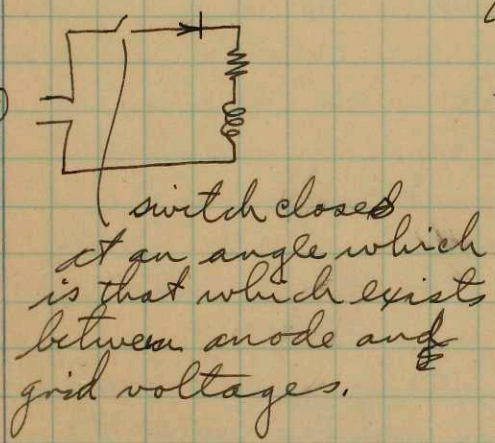 switch closed
at an angle which
is that which exists
between anode and
grid voltages.